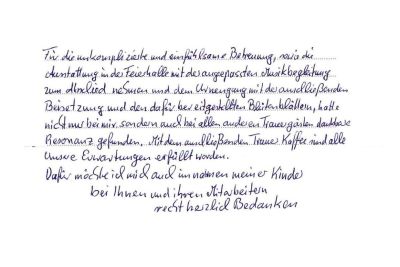 Für die unkomplizierte und einfühlsame Betreuung, sowie die
Ausstattung in der Feierhalle mit der angepassten Musikbegleitung
zum Abschied nehmen und dem Urnengang mit der anschließenden
Beisetzung und den dafür bereitgestellten Blütenblättern, hatte
nicht nur bei mir, sondern auch bei allen anderen Trauergästen dankbare
Resonanz gefunden. Mit dem anschließenden Trauer Kaffee sind alle
unsere Erwartungen erfüllt worden.
Dafür möchte ich mich auch im namen meiner Kinder
bei Ihnen und ihren Mitarbeitern
recht herzlich Bedanken